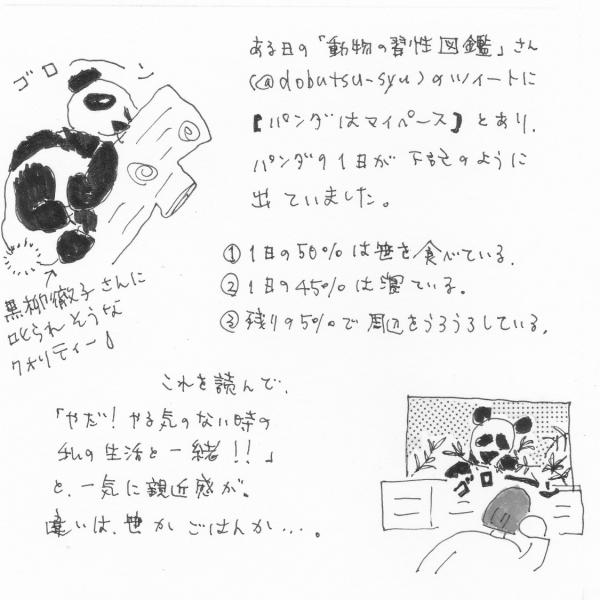 ゴロン
ある日の「動物の習性図鑑」さん
(@dobutsu-syu)のツイートに
【パンダはマイペース】とあり、
パンダの1日が下記のように
出ていました。
① 1日の50%は笹を食べている。
② 1日の45%は寝ている。
③ 残りの5%で周辺をうろうろしている。
黒柳徹子さんに
叱られそうな
クオリティー!
これを読んで、
「やだ!やる気のない時の
私の生活と一緒!!」
と、一気に親近感が。
違いは、笹かごはんか…。
ゴロ